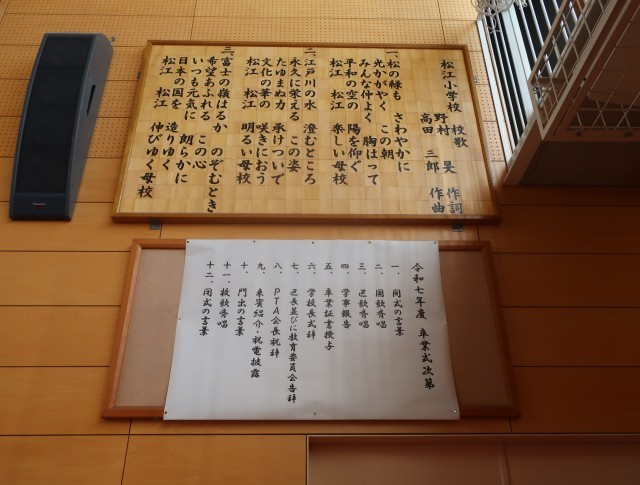 松江小学校 校歌
野村 昊 作詞
高田 三郎 作曲
一、松の緑も さわやかに
光かがやく この朝
みんな仲よく 胸はって
平和の空の 陽を仰ぐ
松江 松江 楽しい母校
二、江戸川の水 澄むところ
永久に栄える この姿
たゆまぬ力 承けついで
文化の華の 咲きにおう
松江 松江 明るい母校
三、富士の嶺はるか のぞむとき
希望あふれる この心
いつも元気に 朗らかに
日本の国を 造りゆく
松江 松江 伸びゆく母校
令和七年度 卒業式次第
一、開式の言葉
二、国歌斉唱
三、区歌斉唱
四、学事報告
五、卒業証書授与
六、学校長式辞
七、区長並びに教育委員会告辞
八、PTA会長祝辞
九、来賓紹介・祝電披露
十、門出の言葉
十一、校歌斉唱
十二、閉式の言葉